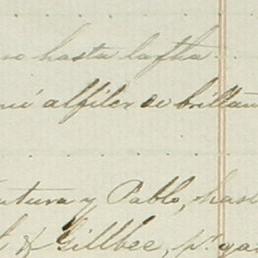 hasta la fha.
alfiler de brillan
tura y Pablo, hast
& Gillbee, pr. ga